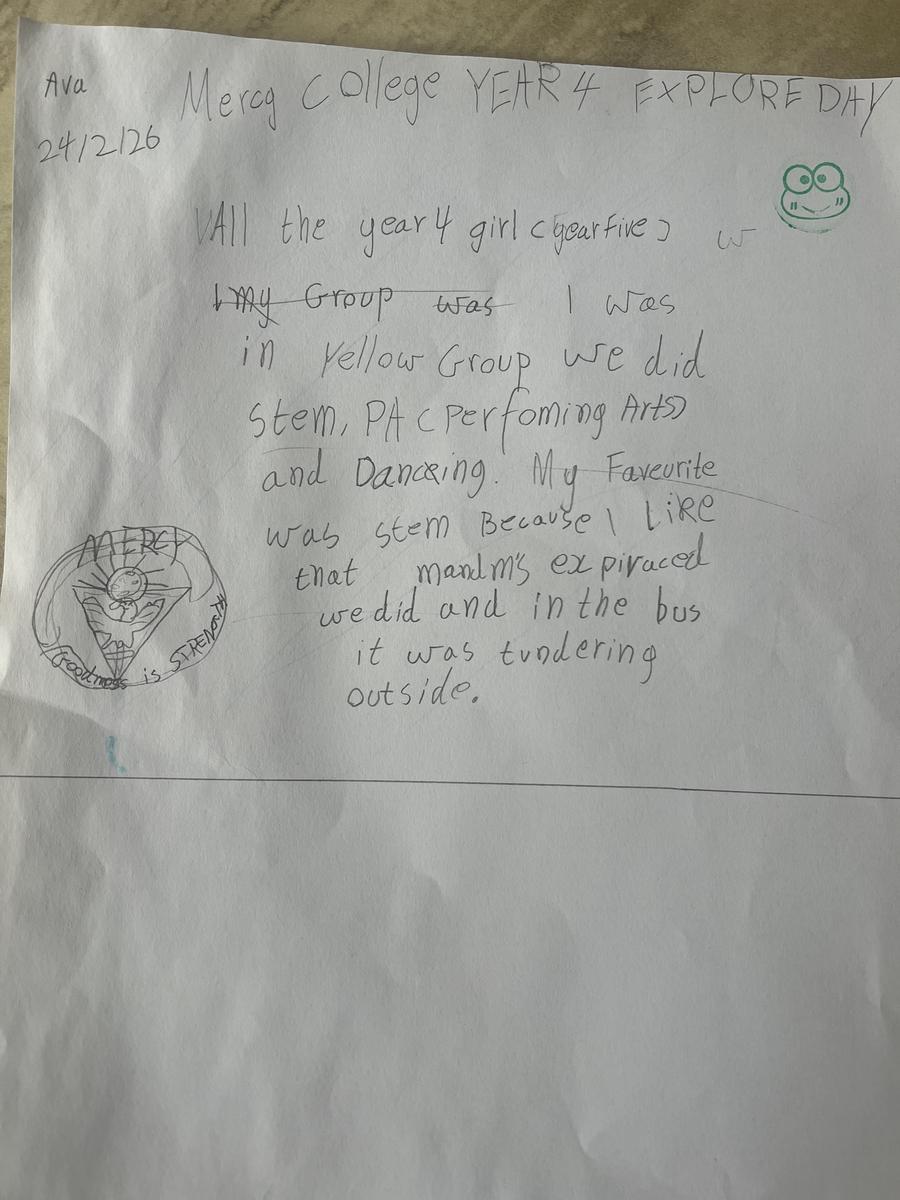 Ava
Mercy College YEAR 4 EXPLORE DAY
24/2/26
All the year 4 girl (year five) w
my Group was I was
in Yellow Group we did
stem, PA (Perfoming Arts)
and Dancing. My Faveurite
was stem Because I Like
that mandm's expiraced
we did and in the bus
it was tundering
outside.
MERCY
Goodness is STRENGTH